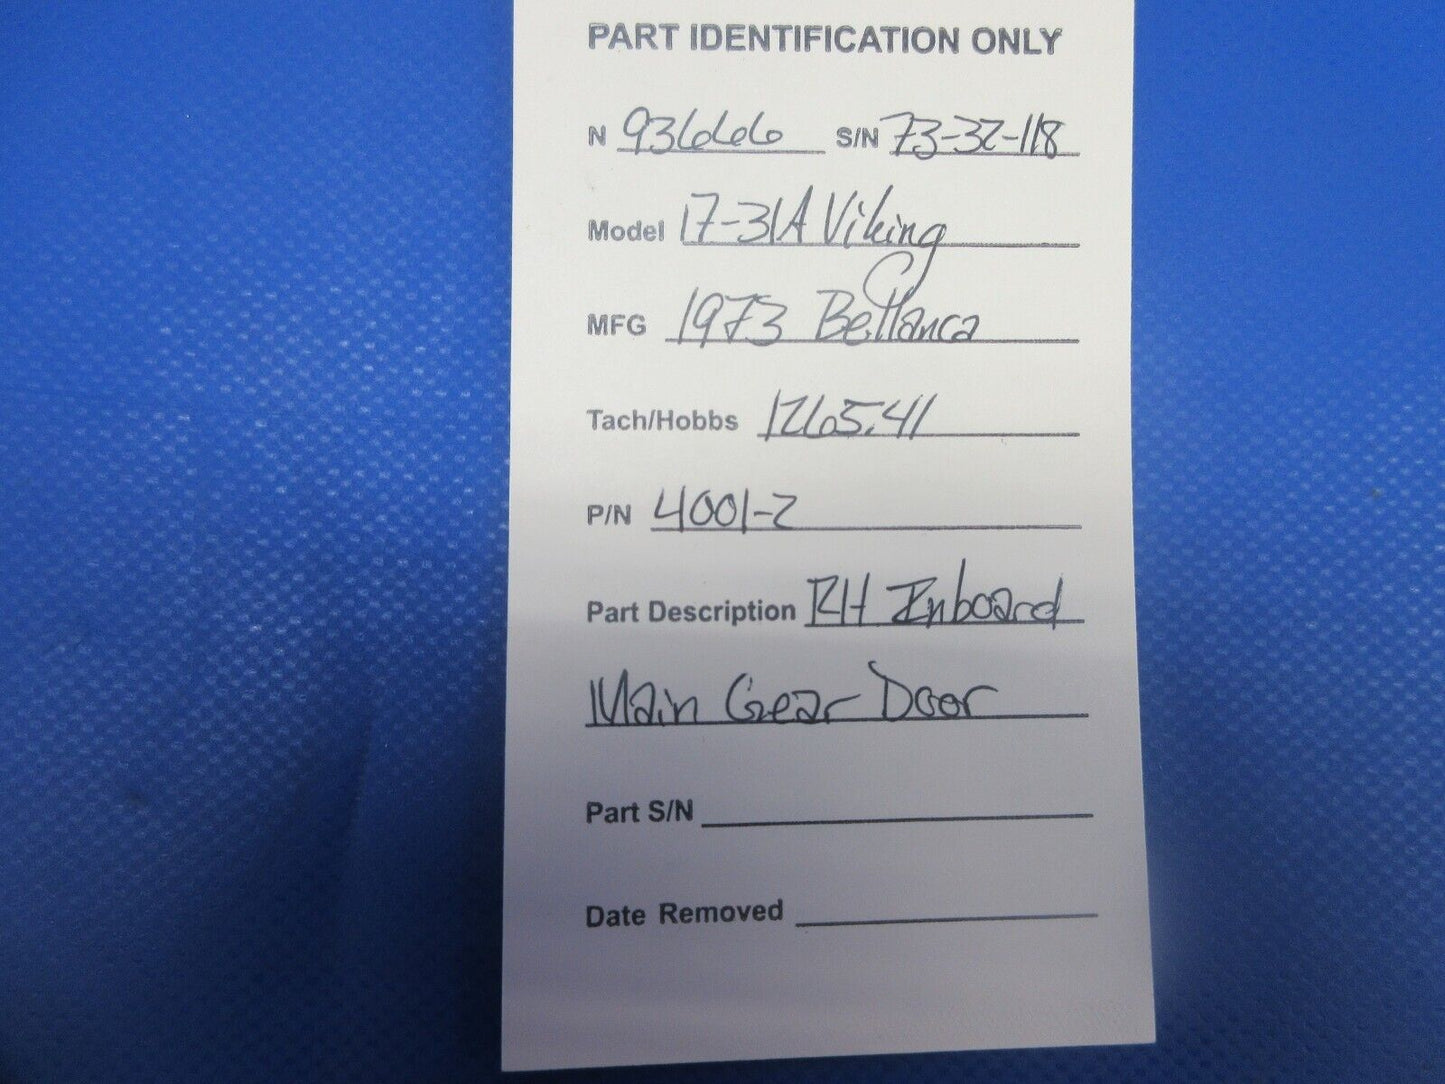 PART IDENTIFICATION ONLY
N 93666 S/N 73-32-118
Model 17-31A Viking
MFG 1973 Bellanca
Tach/Hobbs 1265.41
P/N 4001-2
Part Description RH Inboard
Main Gear Door
Part S/N
Date Removed